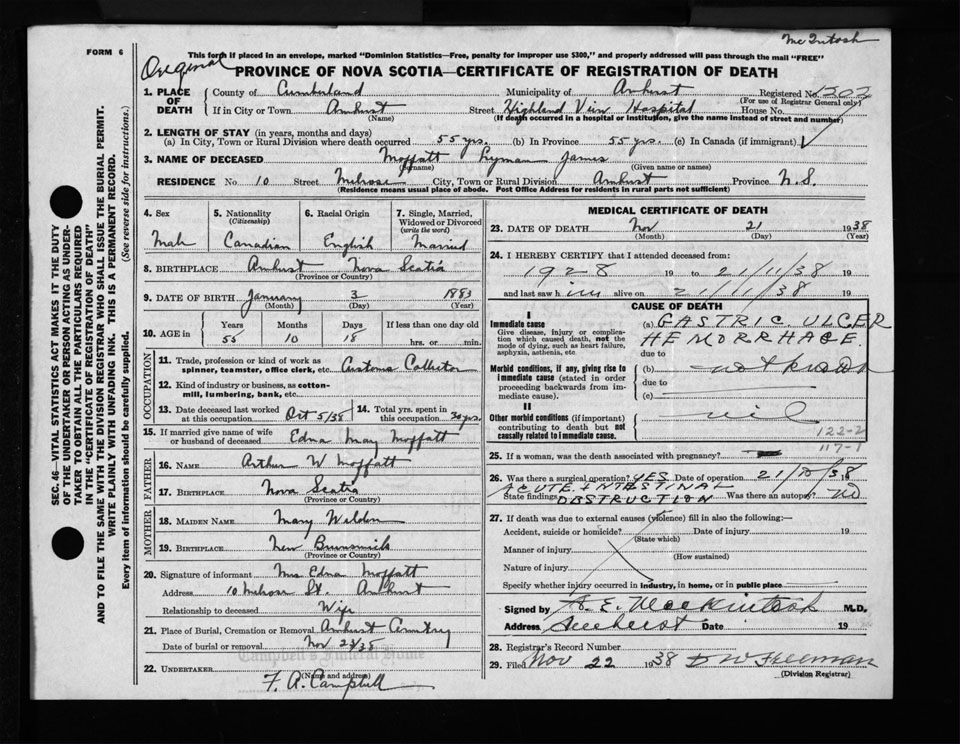 McIntosh
FORM 6
This form if placed in an envelope, marked "Dominion Statistics—Free, penalty for improper use $300," and properly addressed will pass through the mail "FREE"
Original
PROVINCE OF NOVA SCOTIA—CERTIFICATE OF REGISTRATION OF DEATH
1. PLACE OF DEATH
County of Cumberland Municipality of Amherst Registered No.
(For use of Registrar General only)
If in City or Town Amherst Street Highland View Hospital House No.
(Name) (If death occurred in a hospital or institution, give the name instead of street and number)
2. LENGTH OF STAY (in years, months and days)
(a) In City, Town or Rural Division where death occurred 55 yrs. (b) In Province 55 yrs. (c) In Canada (if immigrant)
3. NAME OF DECEASED Moffatt Lyman James
(Surname) (Given name or names)
RESIDENCE No 10 Street Melrose City, Town or Rural Division Amherst Province N.S.
(Residence means usual place of abode. Post Office Address for residents in rural parts not sufficient)
4. Sex
Male
5. Nationality
(Citizenship)
Canadian
6. Racial Origin
English
7. Single, Married, Widowed or Divorced
(write the word)
Married
8. BIRTHPLACE Amherst Nova Scotia
(Province or Country)
9. DATE OF BIRTH January 3 1883
(Month) (Day) (Year)
10. AGE in
Years Months Days If less than one day old
55 10 18 hrs. or min.
OCCUPATION
11. Trade, profession or kind of work as spinner, teamster, office clerk, etc. Customs Collector
12. Kind of industry or business, as cotton-mill, lumbering, bank, etc.
13. Date deceased last worked at this occupation Oct 5/38
14. Total yrs. spent in this occupation 30 yrs.
15. If married give name of wife or husband of deceased Edna May Moffatt
FATHER
16. NAME Arthur W Moffatt
17. BIRTHPLACE Nova Scotia
(Province or Country)
MOTHER
18. MAIDEN NAME Mary Weldon
19. BIRTHPLACE New Brunswick
(Province or Country)
20. Signature of informant Mrs Edna Moffatt
Address 10 Melrose St. Amherst
Relationship to deceased Wife
21. Place of Burial, Cremation or Removal Amherst Cemetery
Date of burial or removal Nov 23/38
Campbell's Funeral Home
22. UNDERTAKER F. A. Campbell
(Name and address)
MEDICAL CERTIFICATE OF DEATH
23. DATE OF DEATH Nov 21 1938
(Month) (Day) (Year)
24. I HEREBY CERTIFY that I attended deceased from:
1928 19 to 21/11/38 19
and last saw him alive on 21/11/38 19
CAUSE OF DEATH
I
Immediate cause
Give disease, injury or complication which caused death, not the mode of dying, such as heart failure, asphyxia, asthenia, etc
(a) GASTRIC ULCER
HEMORRHAGE.
due to
Morbid conditions, if any, giving rise to immediate cause (stated in order proceeding backwards from immediate cause).
(b) not known
due to
(c)
II
Other morbid conditions (if important) contributing to death but not causally related to immediate cause.
nil
122-2
117-1
25. If a woman, was the death associated with pregnancy?
26. Was there a surgical operation? YES Date of operation 21/10/38 19
State findings ACUTE INTESTINAL OBSTRUCTION Was there an autopsy? NO
27. If death was due to external causes (violence) fill in also the following:—
Accident, suicide or homicide? Date of injury 19
(State which)
Manner of injury
(How sustained)
Nature of injury
Specify whether injury occurred in industry, in home, or in public place
Signed by A. E. Mackintosh M.D.
Address Amherst Date 19
28. Registrar's Record Number
29. Filed Nov 22 1938 D W Freeman
(Division Registrar)
SEC. 46—VITAL STATISTICS ACT MAKES IT THE DUTY
OF THE UNDERTAKER OR PERSON ACTING AS UNDER-
TAKER TO OBTAIN ALL THE PARTICULARS REQUIRED
IN THE "CERTIFICATE OF REGISTRATION OF DEATH"
AND TO FILE THE SAME WITH THE DIVISION REGISTRAR WHO SHALL ISSUE THE BURIAL PERMIT.
WRITE PLAINLY WITH UNFADING INK. THIS IS A PERMANENT RECORD.
Every item of information should be carefully supplied. (See reverse side for instructions.)